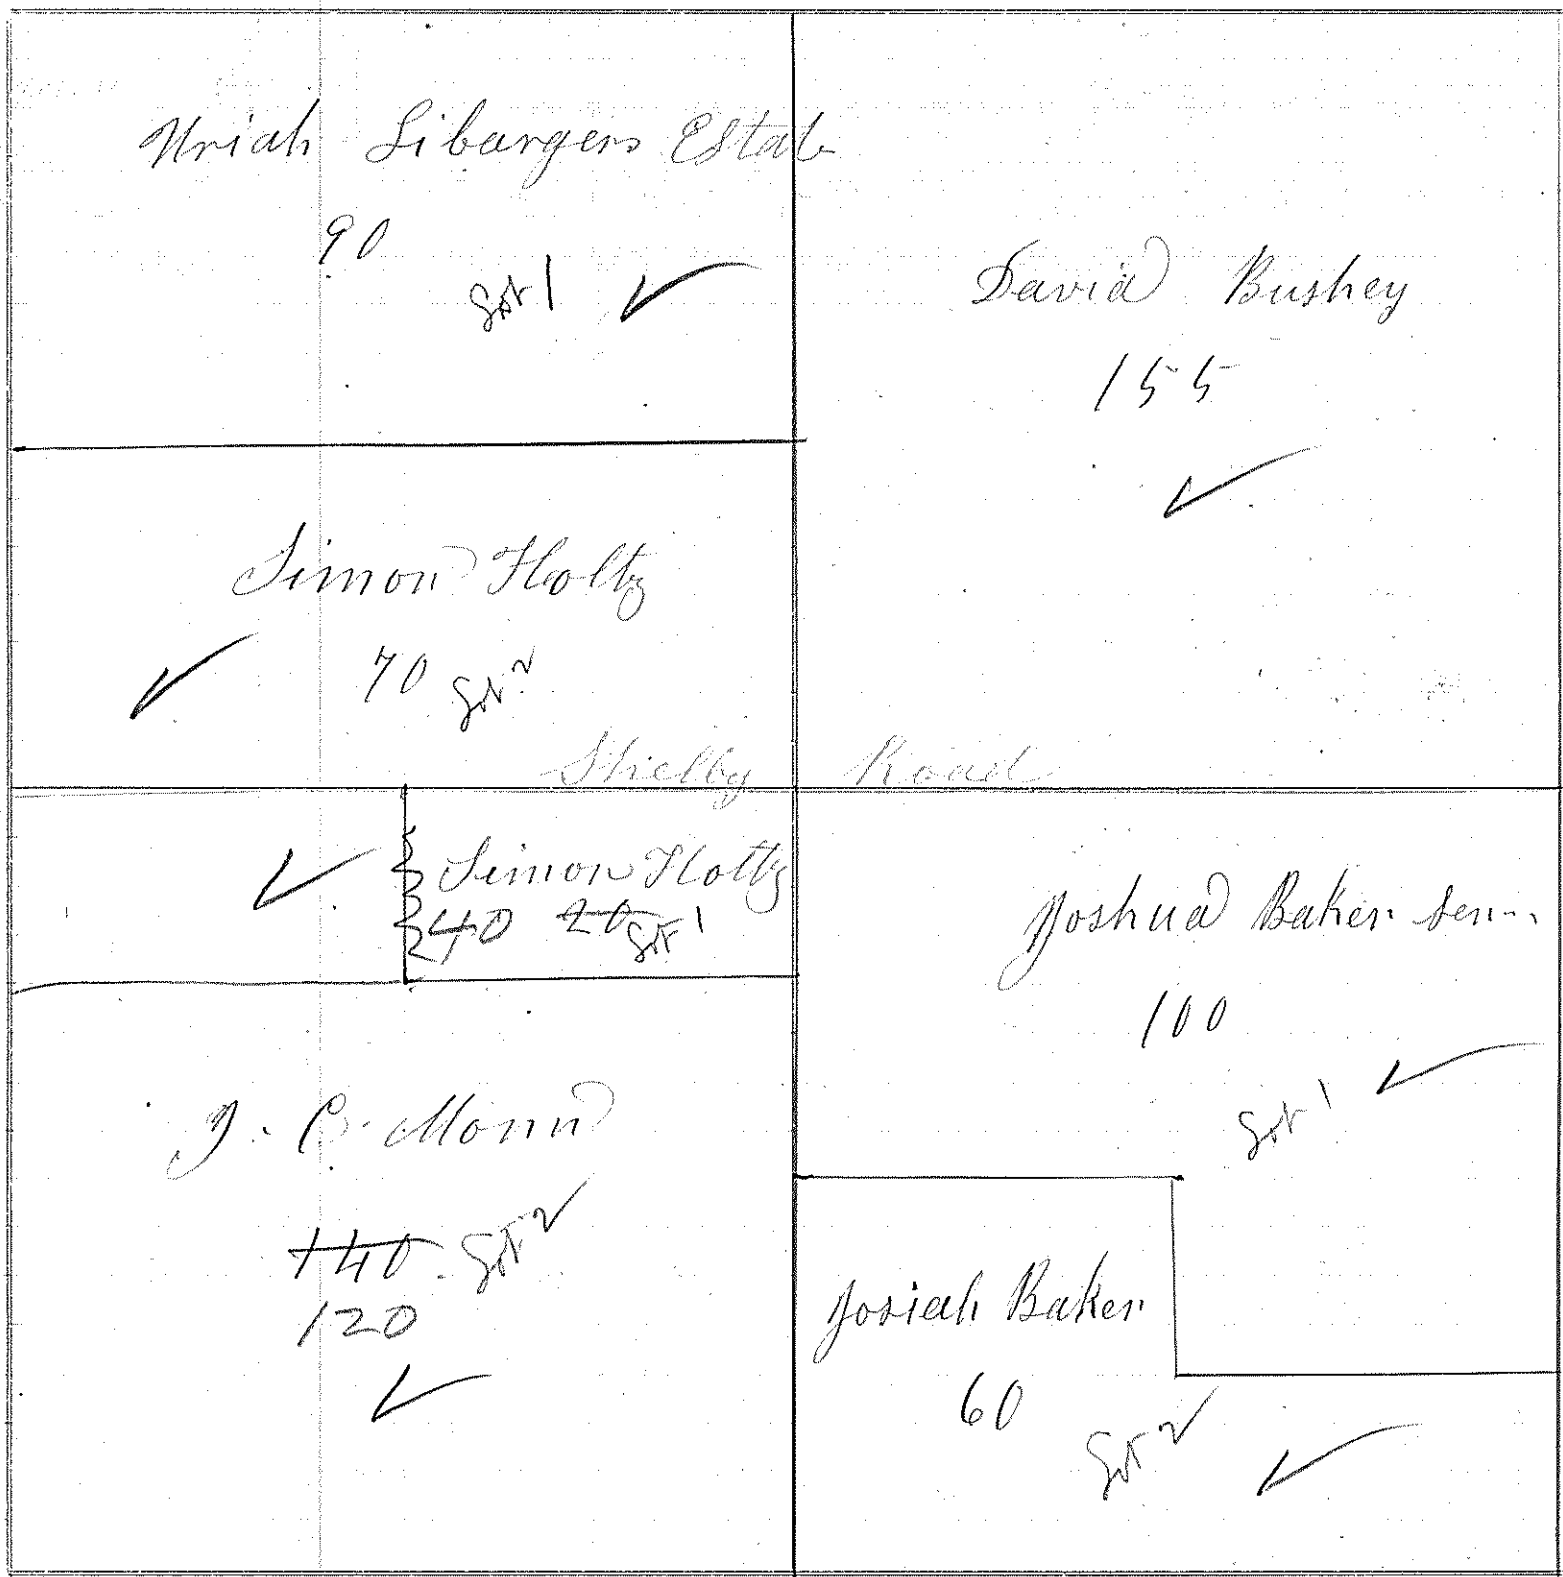 Uriah Sibargers Estate
90
Lot 1
David Bushey
155
Simon Holtz
70 Lot 2
Shelby Road
Simon Holtz
40 20 Lot 1
Joshua Baker sen..
100
Lot 1
J. C. Morin
140. Lot 2
120
Josiah Baker
60
Lot 2